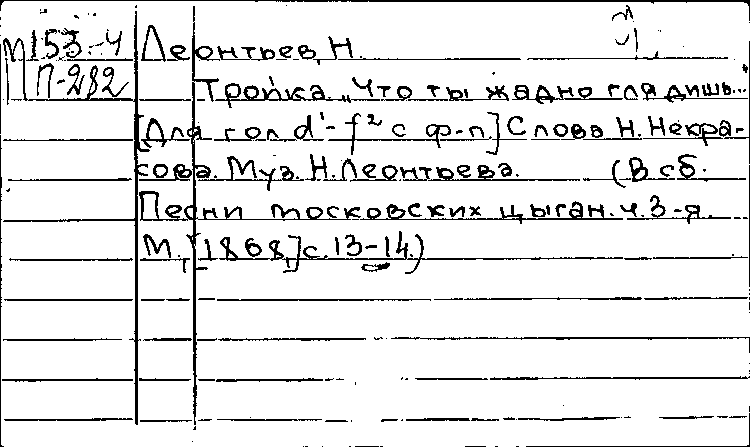 М 153-4 Леонтьев, Н.
П-282 Тройка. "Что ты жадно глядишь..."
[Для гол d'-f² с ф-п.] Слова Н. Некра-
сова. Муз. Н. Леонтьева. (В сб.
Песни московских цыган. ч. 3-я.
М., [1868,] с. 13-14.)